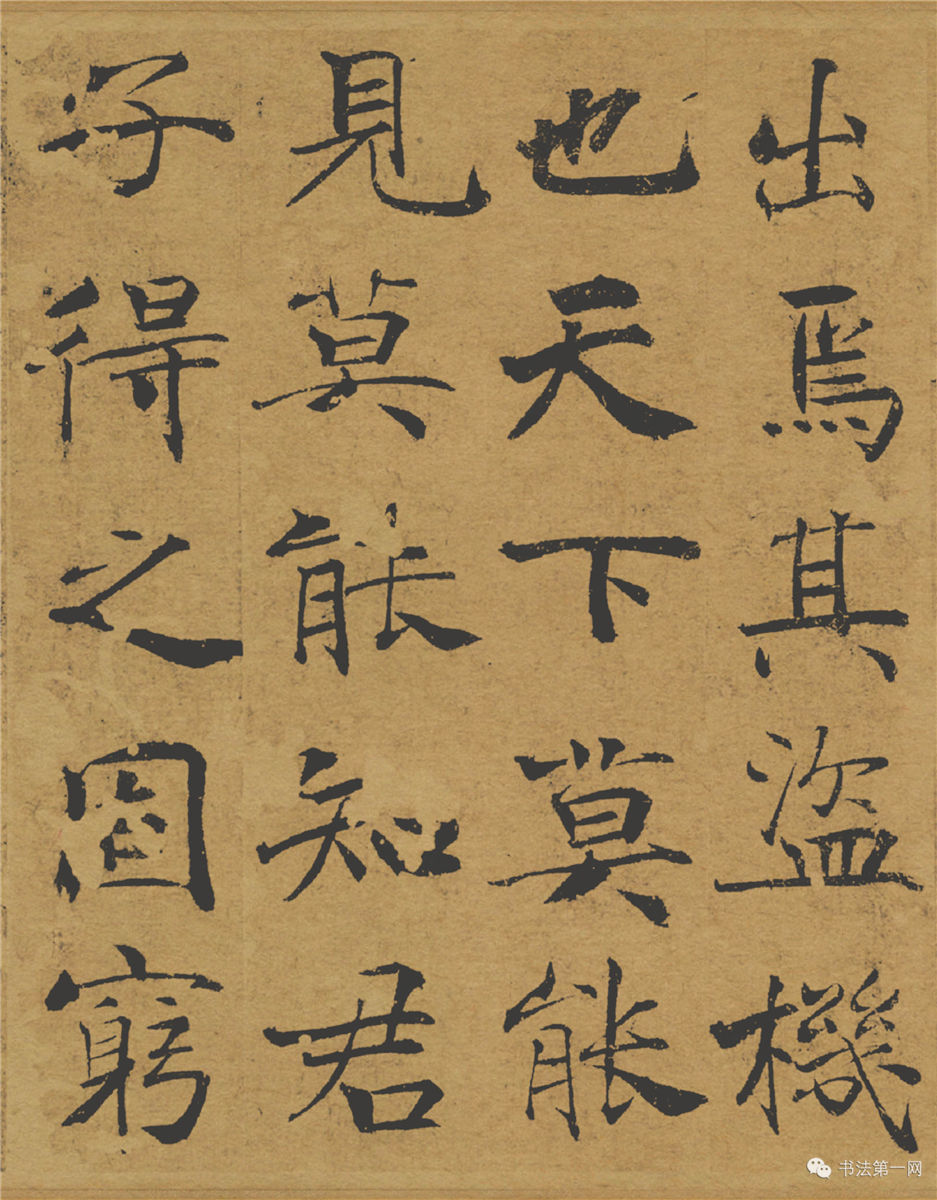 出焉其盜機
也天下莫能
見莫能知君
子得之固窮
书法第一网